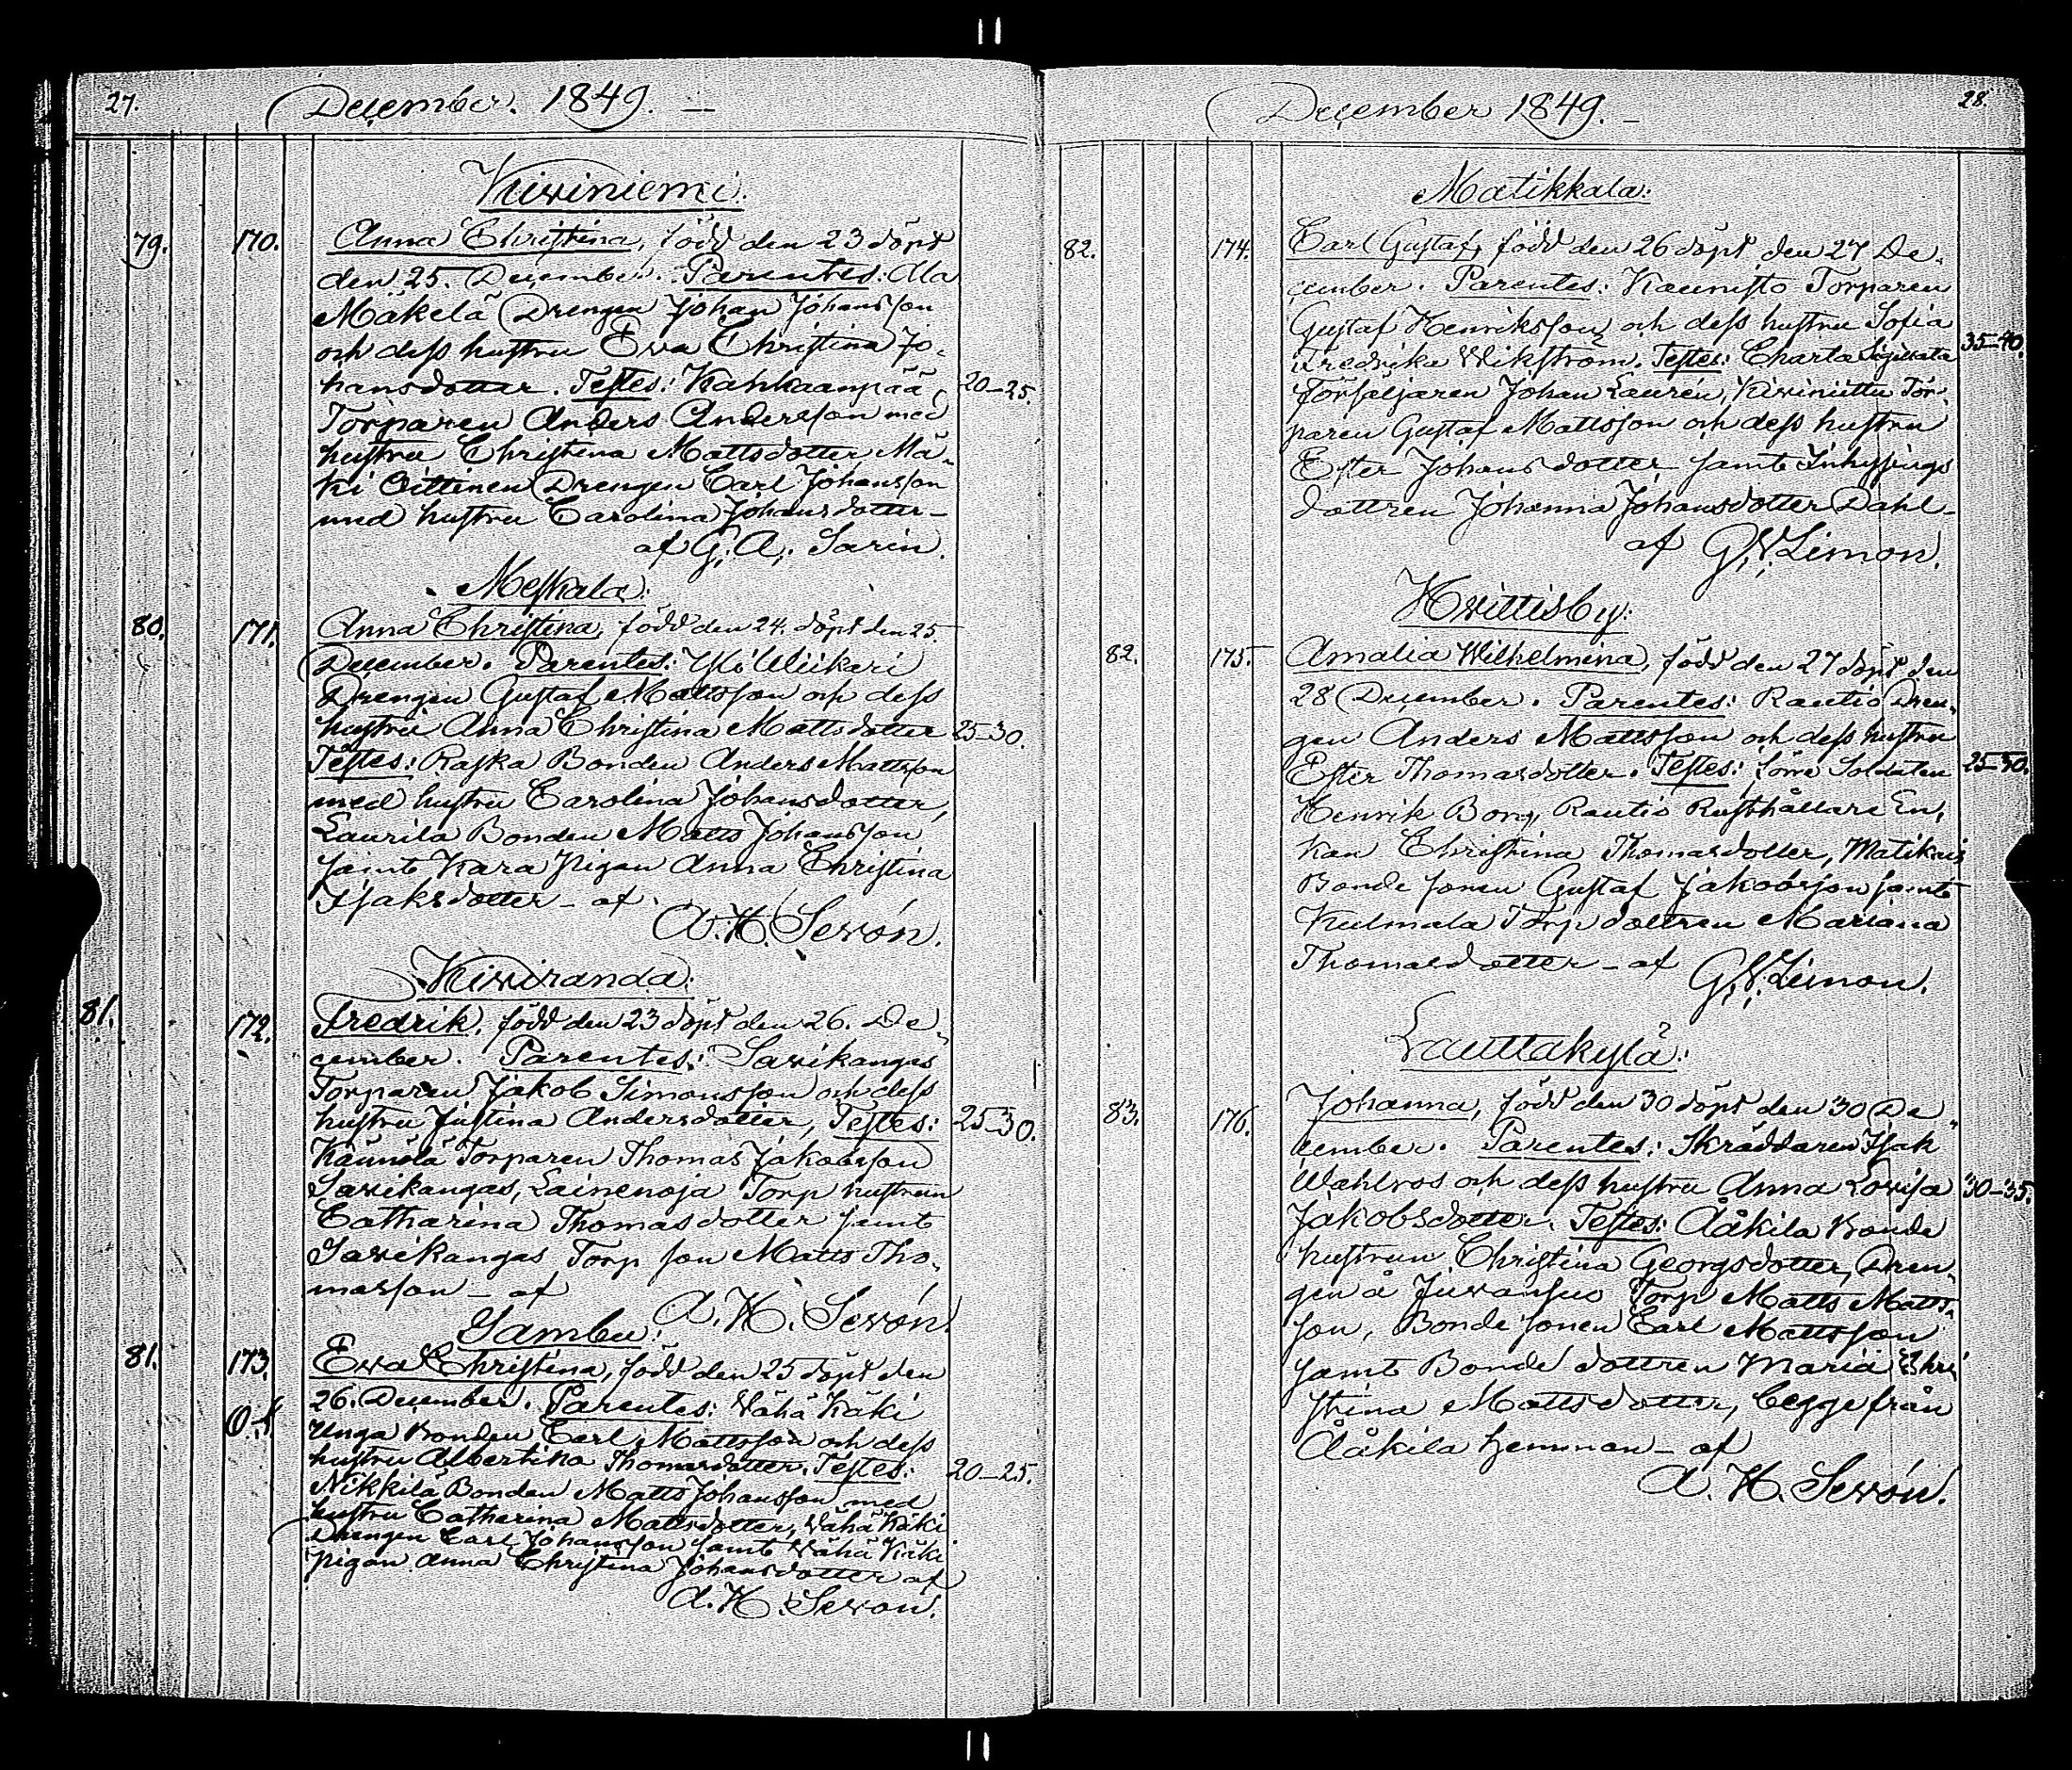 27. December. 1849. —
Kiviniemi.
79. 170. Anna Christina, född den 23 döpt
den 25. December. Parentes: Ala
Mäkelä Drengen Johan Johansson
och dess hustru Eva Christina Jo-
hansdotter. Testes: Kahkaanpää 20–25.
Torparen Anders Andersson med
hustru Christina Mattsdotter Mä-
ki Oittinen Drengen Carl Johansson
med hustru Carolina Johansdotter –
af G. A. Sarin.
Meskala:
80. 171. Anna Christina, född den 24. döpt den 25.
December. Parentes: Yli Wiikari
Drengen Gustaf Mattsson och dess
hustru Anna Christina Mattsdotter 25–30.
Testes: Raska Bonden Anders Mattsson
med hustru Carolina Johansdotter,
Laurila Bonden Matts Johansson
samt Kara Pigan Anna Christina
Isaksdotter – af
A. H. Sevón.
Kiviranda:
81. 172. Fredrik, född den 23 döpt den 26. De-
cember. Parentes: Savikangas
Torparen Jakob Simonsson och dess
hustru Justina Andersdotter, Testes: 25–30.
Kaunelä Torparen Thomas Jakobsson
Savikangas, Lainenoja Torp hustrun
Catharina Thomasdotter samt
Savikangas Torp son Matts Tho-
masson – af
A. H. Sevón.
Sambu:
81. 173. Eva Christina, född den 25 döpt den
26. December. Parentes: Vähä Käki
Unga Bonden Carl Mattsson och dess
hustru Albertina Thomasdotter. Testes: 20–25.
Nikkilä Bonden Matts Johansson med
hustru Catharina Mattsdotter, Vähä Käki
Drengen Carl Johansson samt Vähä Käki
pigan Anna Christina Johansdotter af
A. H. Sevon.
December 1849. – 28.
Matikkala:
82. 174. Carl Gustaf, född den 26 döpt den 27 De-
cember. Parentes: Kaunisto Torparen
Gustaf Henriksson och dess hustru Sofia 35–40.
Fredrika Wikström. Testes: Charta Sigillata
Försäljaren Johan Laurén, Kiviniittu Tor-
paren Gustaf Mattsson och dess hustru
Ester Johansdotter samt Inhysings
dottren Johanna Johansdotter Dahl –
af G. V. Limon.
Kvittisby:
82. 175. Amalia Wilhelmina, född den 27 döpt den
28 December. Parentes: Rautio Dren-
gen Anders Mattsson och dess hustru
Ester Thomasdotter. Testes: förre Soldaten
Henrik Borg, Rautio Rusthållare En-
kan Christina Thomasdotter, Matikais
Bonde sonen Gustaf Jakobsson samt
Kulmala Torp dottren Mariana
Thomasdotter – af G. V. Limon.
Lauttakylä:
83. 176. Johanna, född den 30 döpt den 30 De-
cember. Parentes: Skräddaren Isak
Wahlros och dess hustru Anna Lovisa 30–35.
Jakobsdotter. Testes: Äåkila Bonde
hustrun Christina Georgsdotter, Dren-
gen å Juvansuo Torp Matts Matts-
son, Bonde sonen Carl Mattsson
samt Bonde dottren Maria Chri
stina Mattsdotter, begge från
Äåkila hemman – af
A. H. Sevón.